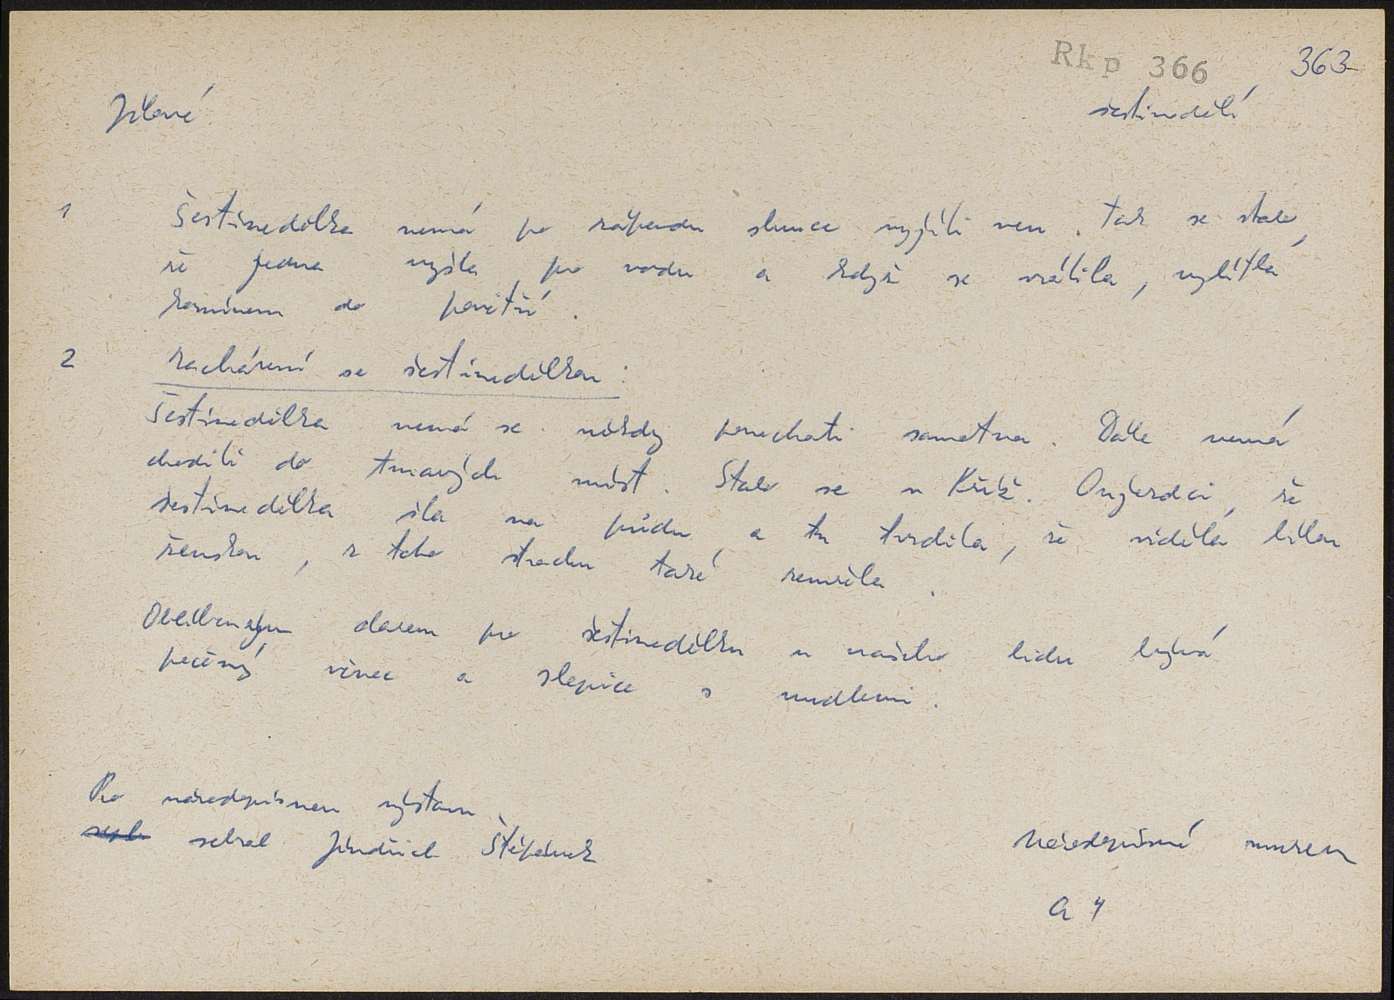 Rkp 366 363
Jílové šestinedělí
1 Šestinedělka nemá po západu slunce vyjíti ven. Tak se stalo,
že jedna vyšla pro vodu a když se vrátila, vylítla
komínem do povětří.
2 Zacházení se šestinedělkou:
Šestinedělka nemá se nikdy ponechati samotna. Dále nemá
choditi do tmavých míst. Stalo se u Kříž. že
šestinedělka šla na půdu a tu tvrdila, že viděla bílou
ženskou, z toho strachu také zemřela.
Oblíbeným darem pro šestinedělku u našeho lidu bývá
pečený věnec a slepice s nudlemi.
Pro národopisnou výstavu
sebral Jindřich Štěpánek
Národopisné museum
a 4